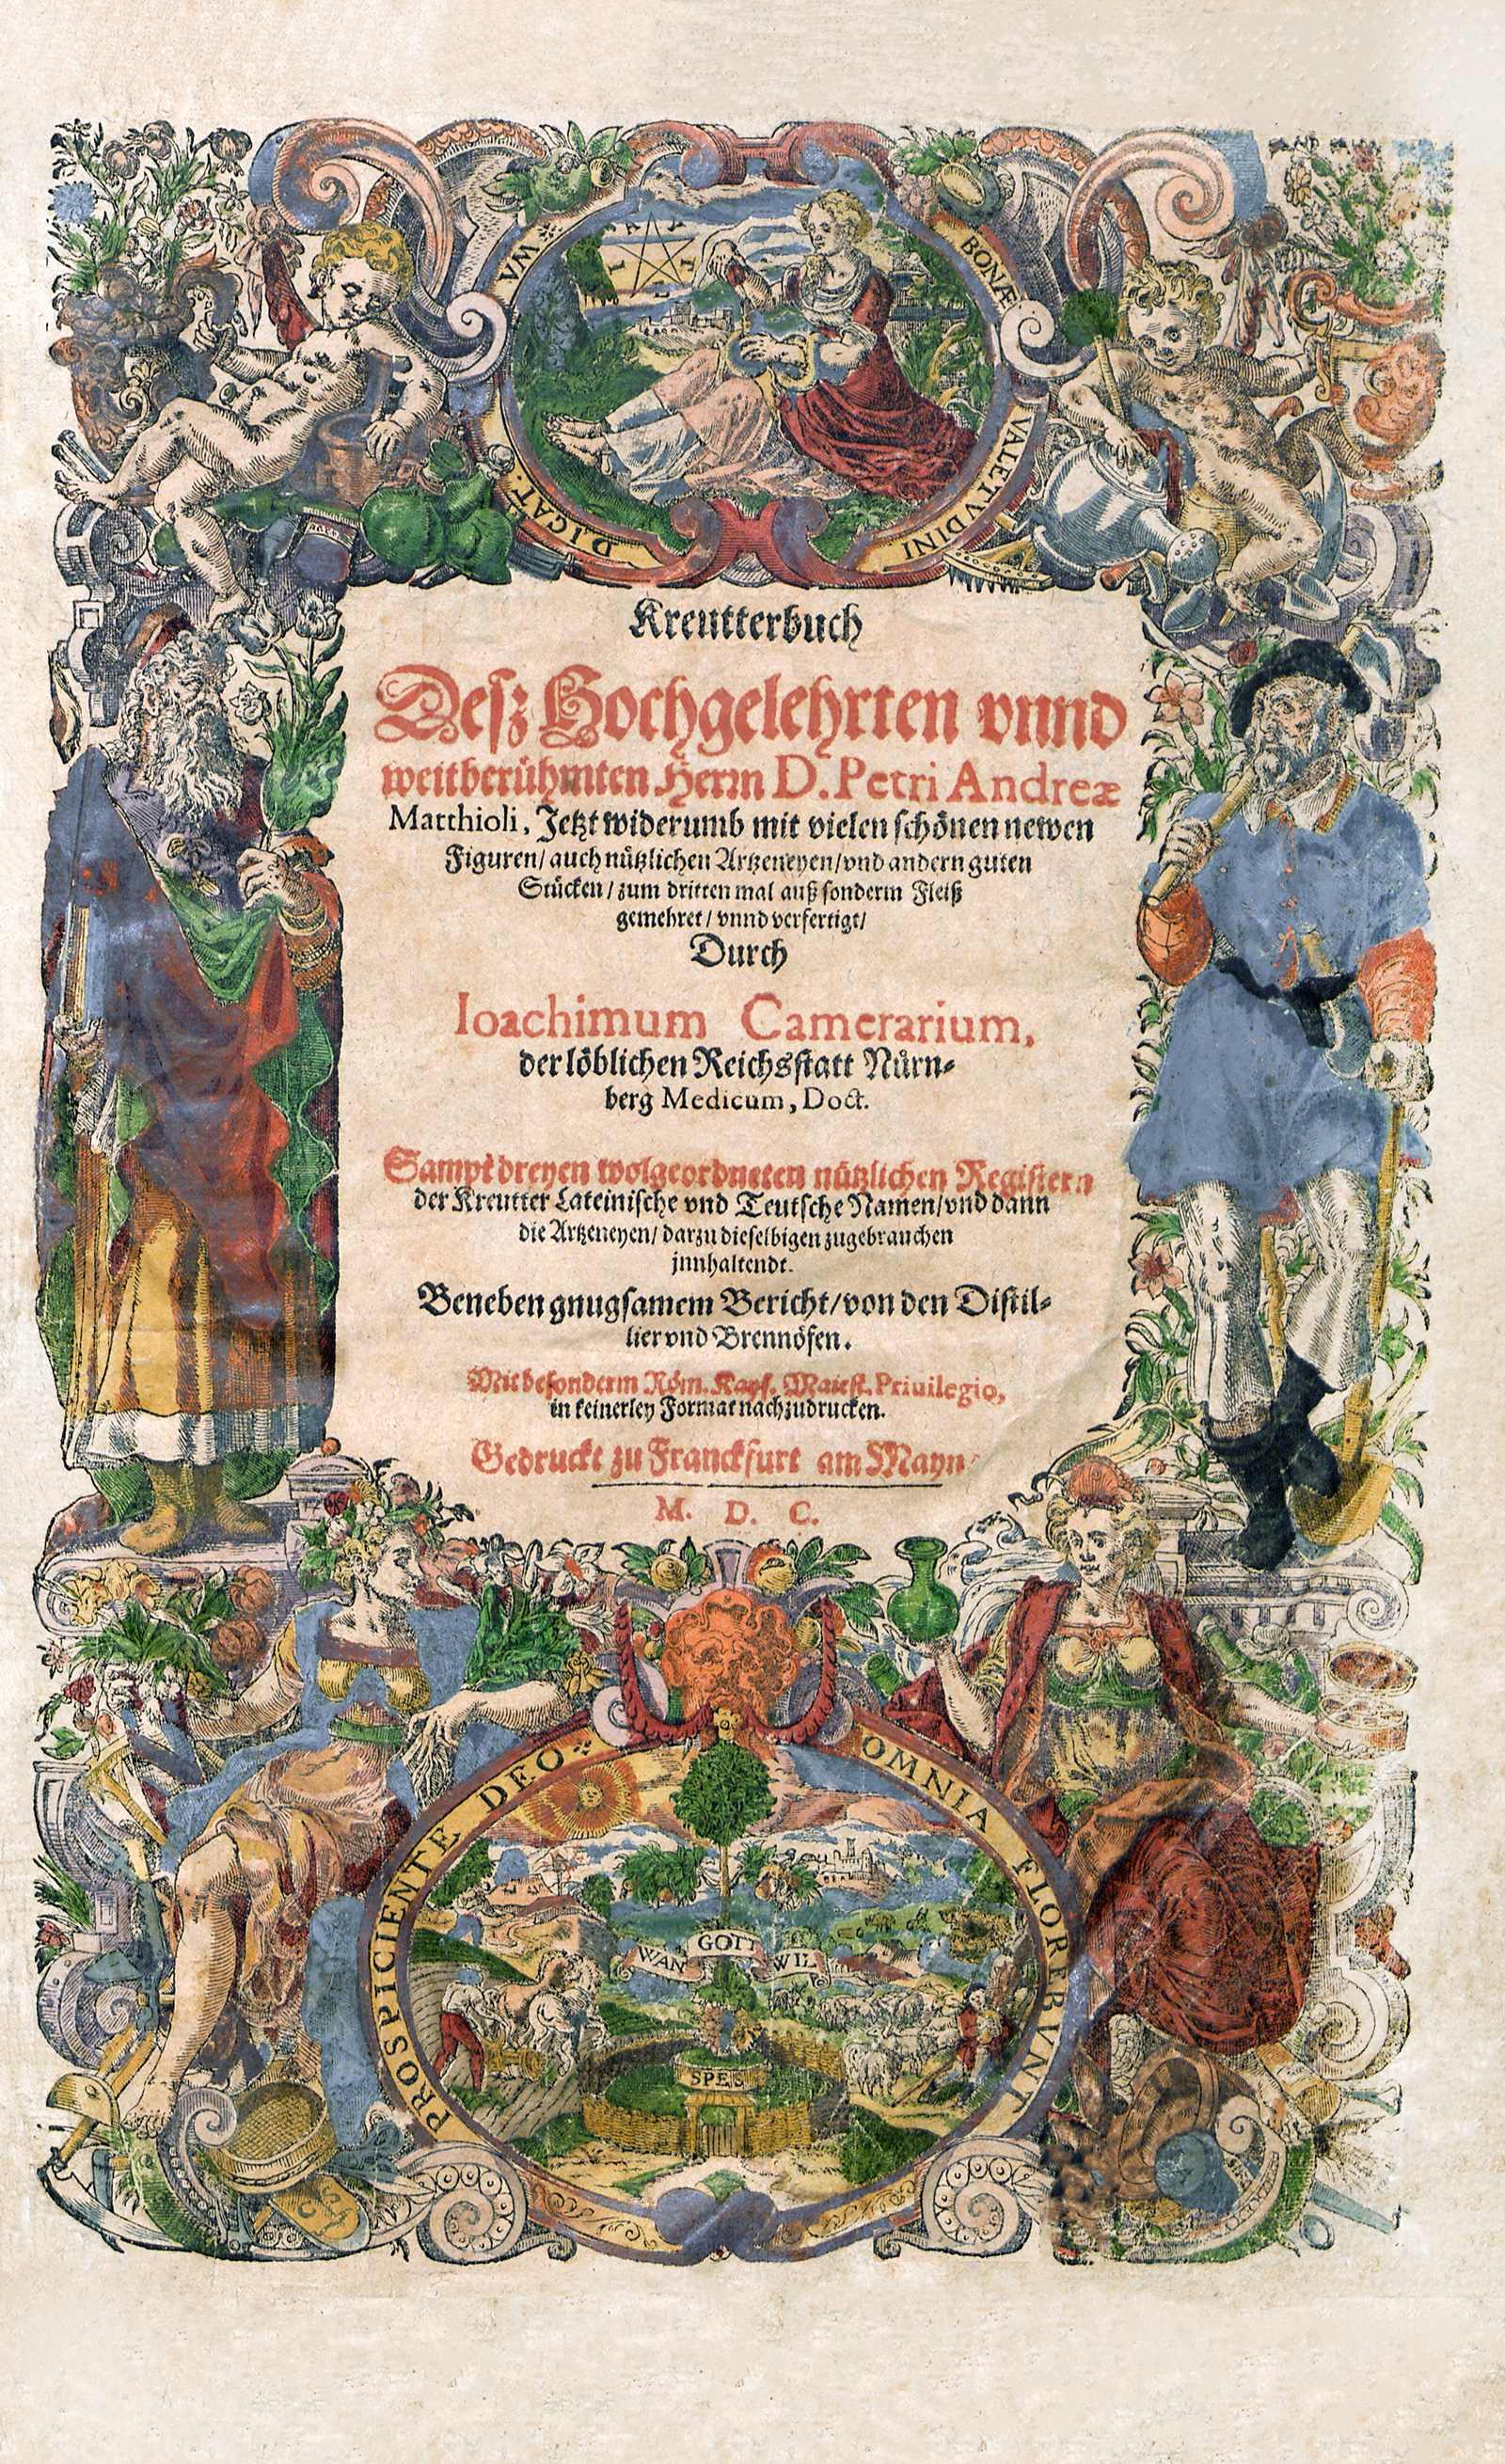 BONÆ VALETVDINI
DICAT.
Kreutterbuch
Deß Hochgelehrten vnnd
weitberühmten Herrn D. Petri Andreæ
Matthioli, Jetzt widerumb mit vielen schönen newen
Figuren/ auch nützlichen Artzeneyen/ vnd andern guten
Stücken/ zum dritten mal auß sonderm Fleiß
gemehret/ vnnd verfertigt/
Durch
Ioachimum Camerarium,
der löblichen Reichsstatt Nürn-
berg Medicum, Doct.
Sampt dreyen wolgeordneten nützlichen Registern
der Kreutter Lateinische vnd Teutsche Namen/ vnd dann
die Artzeneyen/ darzu dieselbigen zugebrauchen
jnnhaltendt.
Beneben gnugsamem Bericht/ von den Distil-
lier vnd Brennöfen.
Mit besonderm Röm. Kays. Maiest. Priuilegio,
in keinerley Format nachzudrucken.
Gedruckt zu Franckfurt am Mayn
M. D. C.
PROSPICIENTE DEO
OMNIA FLOREBVNT
WAN GOTT WIL
SPES